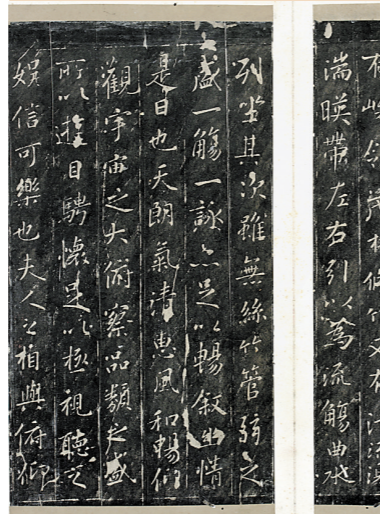 有峻領茂林脩竹又有清流激
湍暎帶左右引以為流觴曲水
列坐其次雖無絲竹管絃之
盛一觴一詠亦足以暢叙幽情
是日也天朗氣清惠風和暢仰
觀宇宙之大俯察品類之盛
所以遊目騁懷足以極視聽之
娛信可樂也夫人之相與俯仰